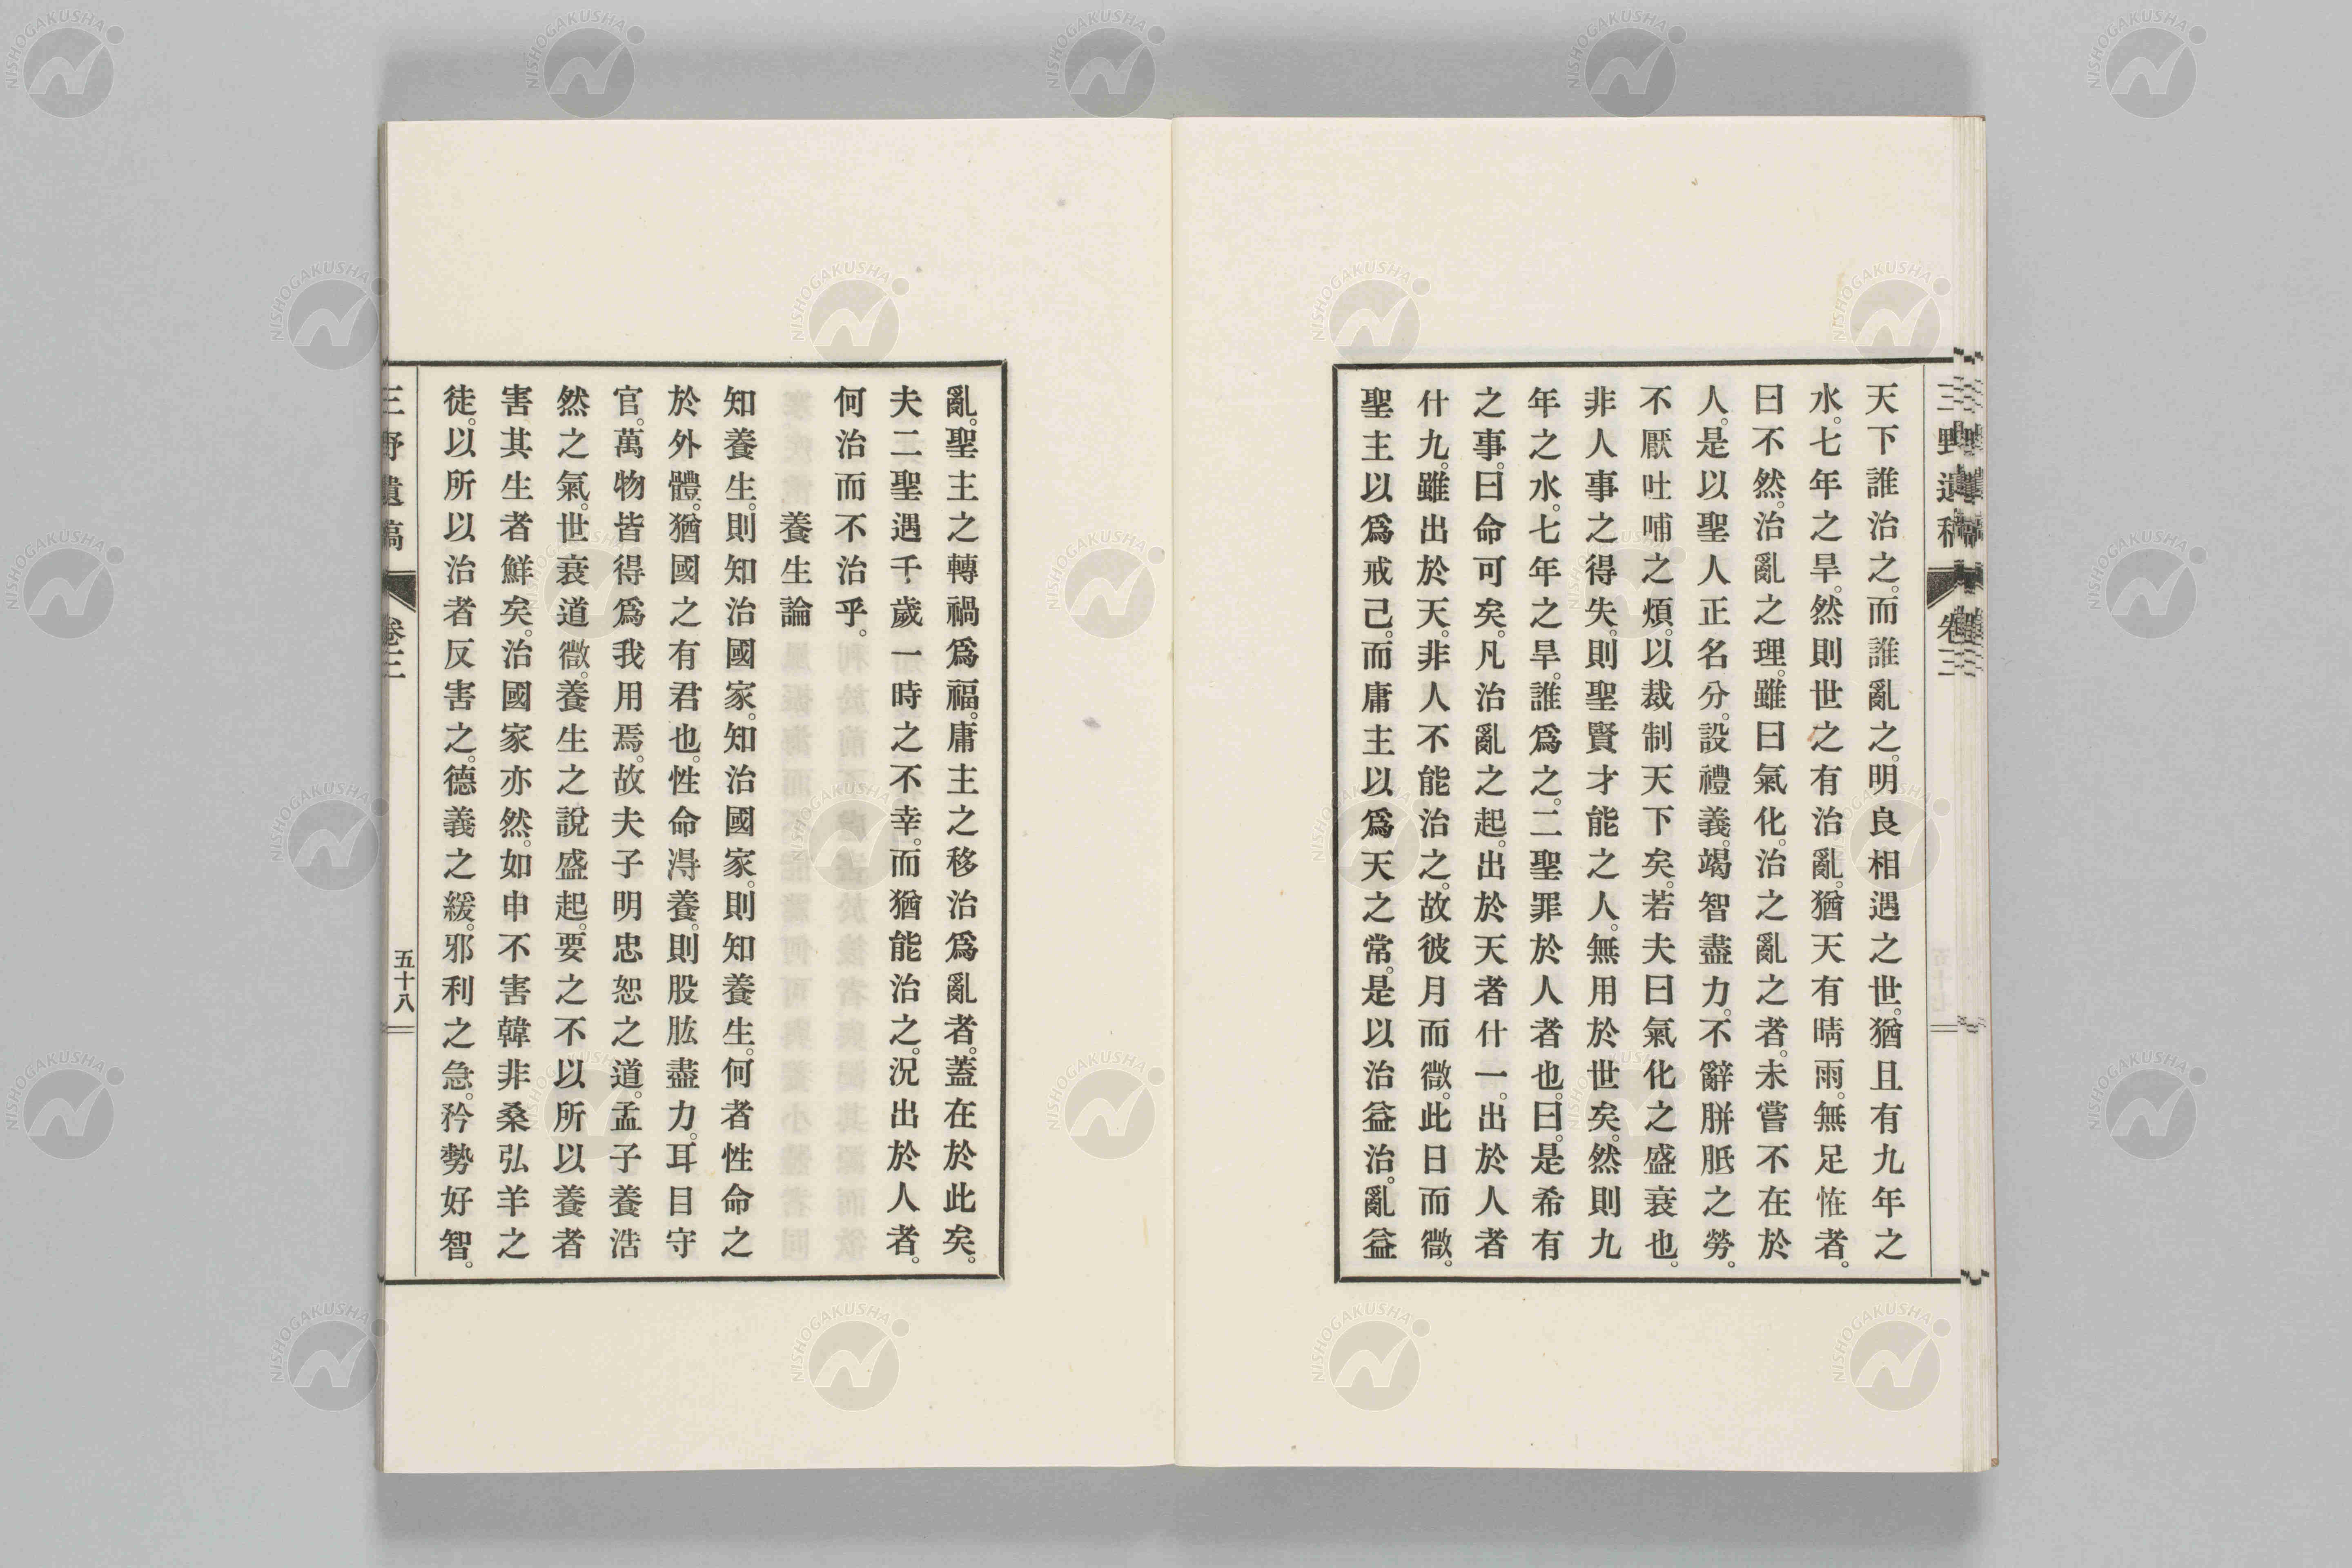 天下誰治之。而誰亂之。明良相遇之世。猶且有九年之
水。七年之旱。然則世之有治亂。猶天有晴雨。無足恠者。
曰不然。治亂之理。雖曰氣化。治之亂之者。未嘗不在於
人。是以聖人正名分。設禮義。竭智盡力。不辭胼胝之勞。
不厭吐哺之煩。以裁制天下矣。若夫曰氣化之盛衰也。
非人事之得失。則聖賢才能之人。無用於世矣。然則九
年之水。七年之旱。誰爲之。二聖罪於人者也。曰。是希有
之事。曰命可矣。凡治亂之起。出於天者什一。出於人者
什九。雖出於天。非人不能治之。故彼月而微。此日而微。
聖主以爲戒己。而庸主以爲天之常。是以治益治。亂益
亂。聖主之轉禍爲福。庸主之移治爲亂者。蓋在於此矣。
夫二聖遇千歲一時之不幸。而猶能治之。況出於人者。
何治而不治乎。
養生論
知養生。則知治國家。知治國家。則知養生。何者性命之
於外體。猶國之有君也。性命得養。則股肱盡力。耳目守
官。萬物皆得爲我用焉。故夫子明忠恕之道。孟子養浩
然之氣。世衰道微。養生之說盛起。要之不以所以養者
害其生者鮮矣。治國家亦然。如申不害韓非桑弘羊之
徒。以所以治者反害之。德義之緩。邪利之急。矜勢好智。
三野遺稿
卷三
五十八